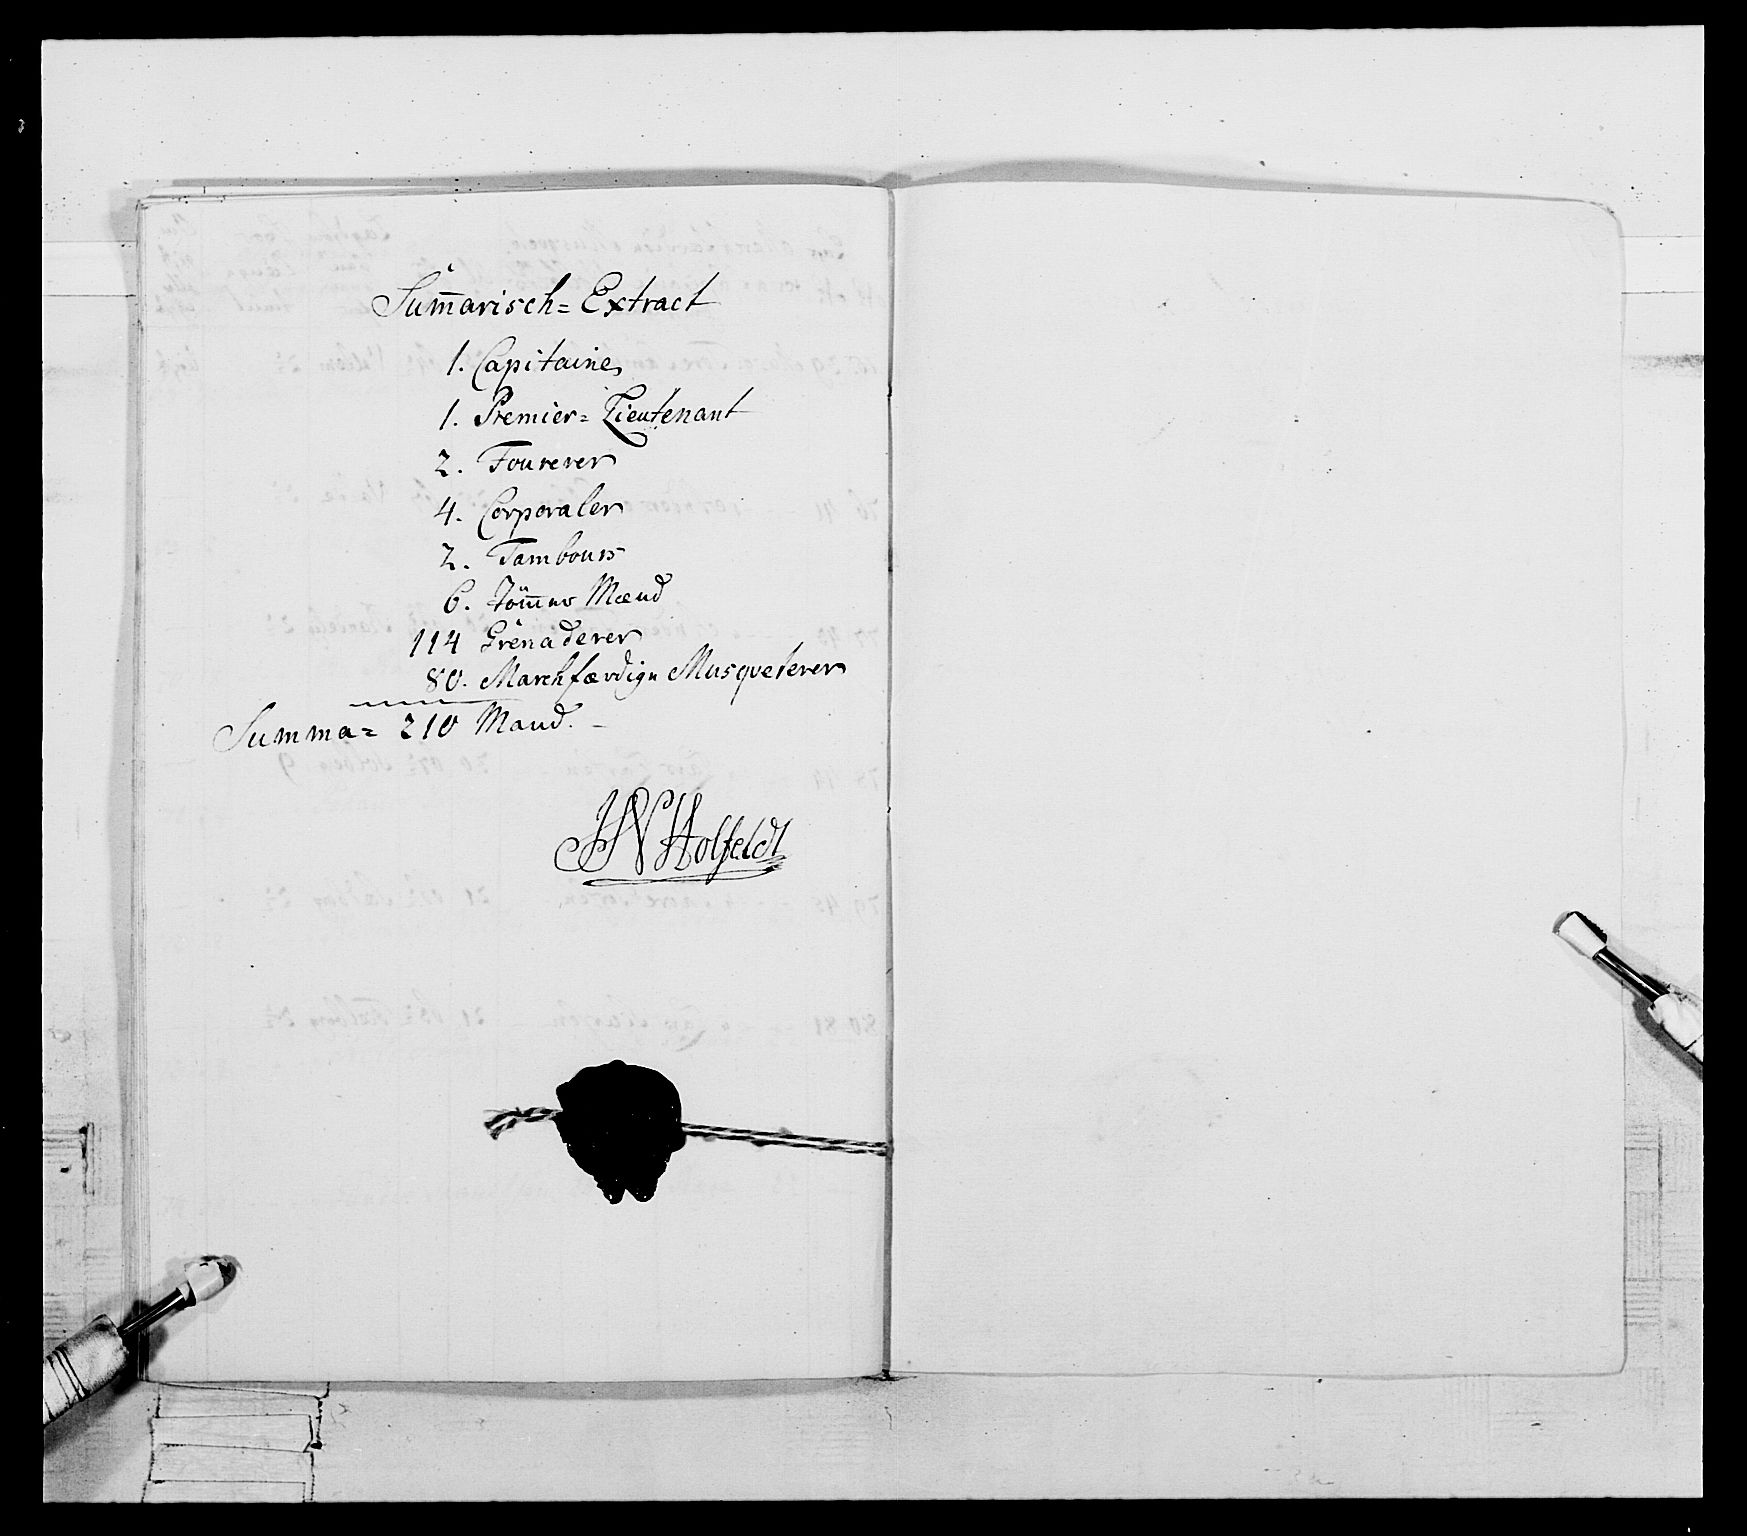 Sum̄arisch= Extract
1. Capitaine
1. Premier= Lieutenant
2. Fourerer
4. Corporaler
2. Tambours
6. Töm̄er Mænd
114 Grenaderer
80. Marchfærdige Musqueterer
Summa= 210 Mand. –
HN Holfeldt